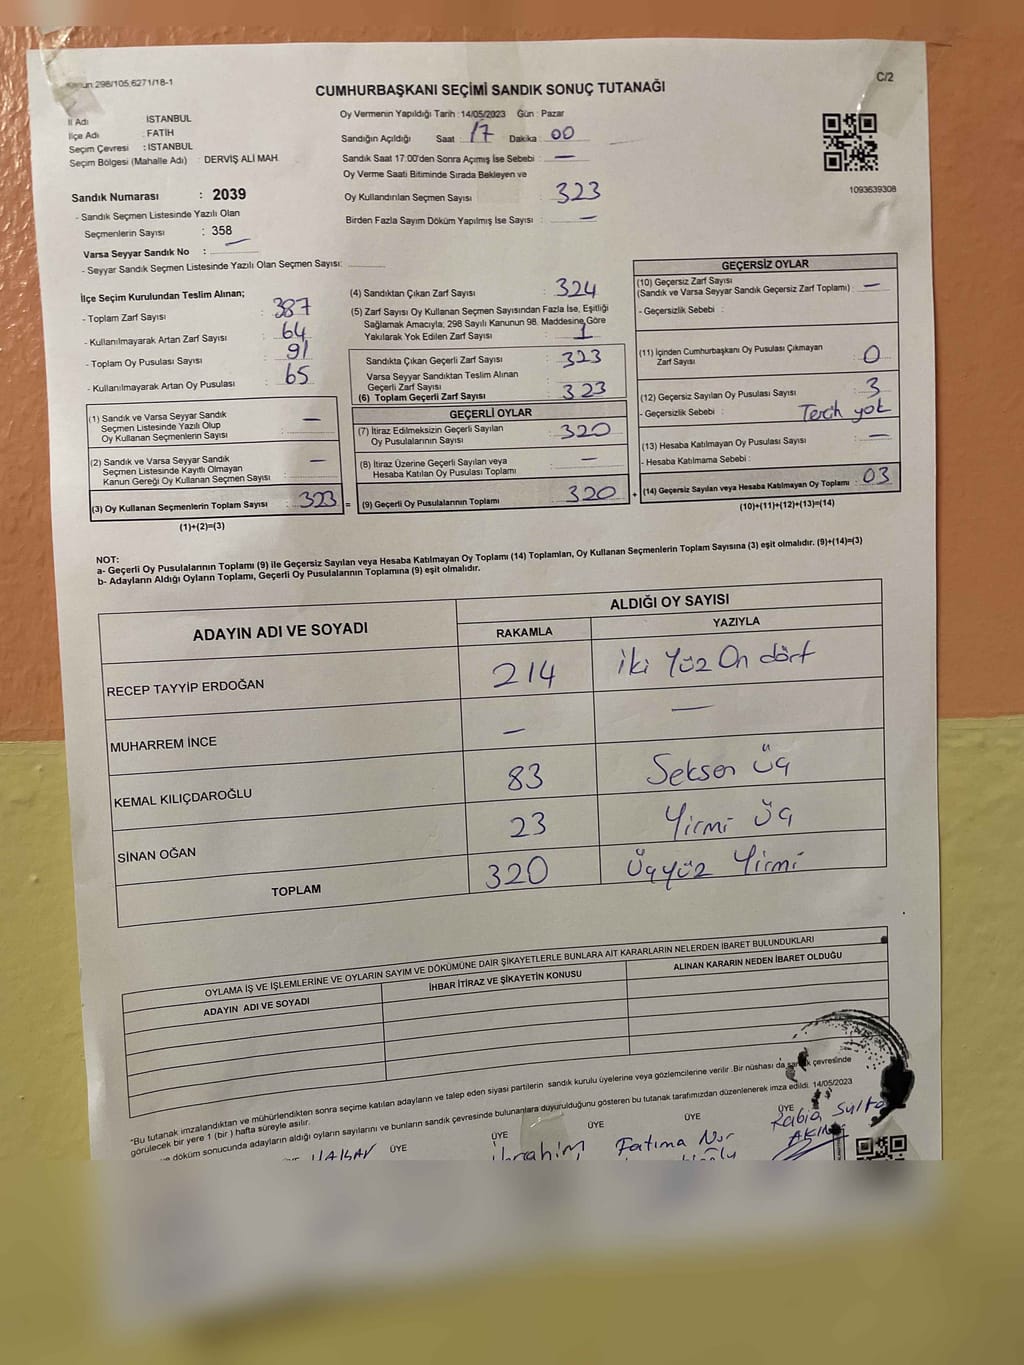 298/105,6271/18-1
C/2
CUMHURBAŞKANI SEÇİMİ SANDIK SONUÇ TUTANAĞI
İl Adı İSTANBUL
İlçe Adı : FATİH
Seçim Çevresi : İSTANBUL
Seçim Bölgesi (Mahalle Adı) : DERVİŞ ALİ MAH.
Sandık Numarası : 2039
- Sandık Seçmen Listesinde Yazılı Olan
Seçmenlerin Sayısı : 358
Varsa Seyyar Sandık No : —
- Seyyar Sandık Seçmen Listesinde Yazılı Olan Seçmen Sayısı:
Oy Vermenin Yapıldığı Tarih : 14/05/2023 Gün : Pazar
Sandığın Açıldığı Saat : 17 Dakika : 00
Sandık Saat 17:00'den Sonra Açımış İse Sebebi : —
Oy Verme Saati Bitiminde Sırada Bekleyen ve
Oy Kullandırılan Seçmen Sayısı : 323
Birden Fazla Sayım Döküm Yapılmış İse Sayısı : —
1093639308
İlçe Seçim Kurulundan Teslim Alınan;
- Toplam Zarf Sayısı : 387
- Kullanılmayarak Artan Zarf Sayısı : 64
- Toplam Oy Pusulası Sayısı : 91
- Kullanılmayarak Artan Oy Pusulası : 65
(1) Sandık ve Varsa Seyyar Sandık
Seçmen Listesinde Yazılı Olup
Oy Kullanan Seçmenlerin Sayısı : —
(2) Sandık ve Varsa Seyyar Sandık
Seçmen Listesinde Kayıtlı Olmayan
Kanun Gereği Oy Kullanan Seçmen Sayısı : —
(3) Oy Kullanan Seçmenlerin Toplam Sayısı : 323 =
(1)+(2)=(3)
(4) Sandıktan Çıkan Zarf Sayısı : 324
(5) Zarf Sayısı Oy Kullanan Seçmen Sayısından Fazla İse, Eşitliği
Sağlamak Amacıyla, 298 Sayılı Kanunun 98. Maddesine Göre
Yakılarak Yok Edilen Zarf Sayısı : 1
Sandıkta Çıkan Geçerli Zarf Sayısı : 323
Varsa Seyyar Sandıktan Teslim Alınan
Geçerli Zarf Sayısı
(6) Toplam Geçerli Zarf Sayısı : 323
GEÇERLİ OYLAR
(7) İtiraz Edilmeksizin Geçerli Sayılan
Oy Pusulalarının Sayısı : 320
(8) İtiraz Üzerine Geçerli Sayılan veya
Hesaba Katılan Oy Pusulası Toplamı : —
(9) Geçerli Oy Pusulalarının Toplamı : 320 +
GEÇERSİZ OYLAR
(10) Geçersiz Zarf Sayısı
(Sandık ve Varsa Seyyar Sandık Geçersiz Zarf Toplamı) : —
- Geçersizlik Sebebi :
(11) İçinden Cumhurbaşkanı Oy Pusulası Çıkmayan
Zarf Sayısı : 0
(12) Geçersiz Sayılan Oy Pusulası Sayısı : 3
- Geçersizlik Sebebi : Tercih yok
(13) Hesaba Katılmayan Oy Pusulası Sayısı : —
- Hesaba Katılmama Sebebi :
(14) Geçersiz Sayılan veya Hesaba Katılmayan Oy Toplamı : 03
(10)+(11)+(12)+(13)=(14)
NOT:
a- Geçerli Oy Pusulalarının Toplamı (9) ile Geçersiz Sayılan veya Hesaba Katılmayan Oy Toplamı (14) Toplamları, Oy Kullanan Seçmenlerin Toplam Sayısına (3) eşit olmalıdır. (9)+(14)=(3)
b- Adayların Aldığı Oyların Toplamı, Geçerli Oy Pusulalarının Toplamına (9) eşit olmalıdır.
ADAYIN ADI VE SOYADI ALDIĞI OY SAYISI
RAKAMLA YAZIYLA
RECEP TAYYİP ERDOĞAN 214 iki Yüz On dört
MUHARREM İNCE — —
KEMAL KILIÇDAROĞLU 83 Seksen üç
SİNAN OĞAN 23 Yirmi üç
TOPLAM 320 Üçyüz Yirmi
OYLAMA İŞ VE İŞLEMLERİNE VE OYLARIN SAYIM VE DÖKÜMÜNE DAİR ŞİKAYETLERLE BUNLARA AİT KARARLARIN NELERDEN İBARET BULUNDUKLARI
ADAYIN ADI VE SOYADI İHBAR İTİRAZ VE ŞİKAYETİN KONUSU ALINAN KARARIN NEDEN İBARET OLDUĞU
"Bu tutanak imzalandıktan ve mühürlendikten sonra seçime katılan adayların ve talep eden siyasi partilerin sandık kurulu üyelerine veya gözlemcilerine verilir .Bir nüshası da sandık çevresinde
görülecek bir yere 1 (bir ) hafta süreyle asılır.
döküm sonucunda adayların aldığı oyların sayılarını ve bunların sandık çevresinde bulunanlara duyurulduğunu gösteren bu tutanak tarafımızdan düzenlenerek imza edildi. 14/05/2023
ÜYE ÜYE ÜYE ÜYE ÜYE
İbrahim Fatıma Nur Rabia Sulta